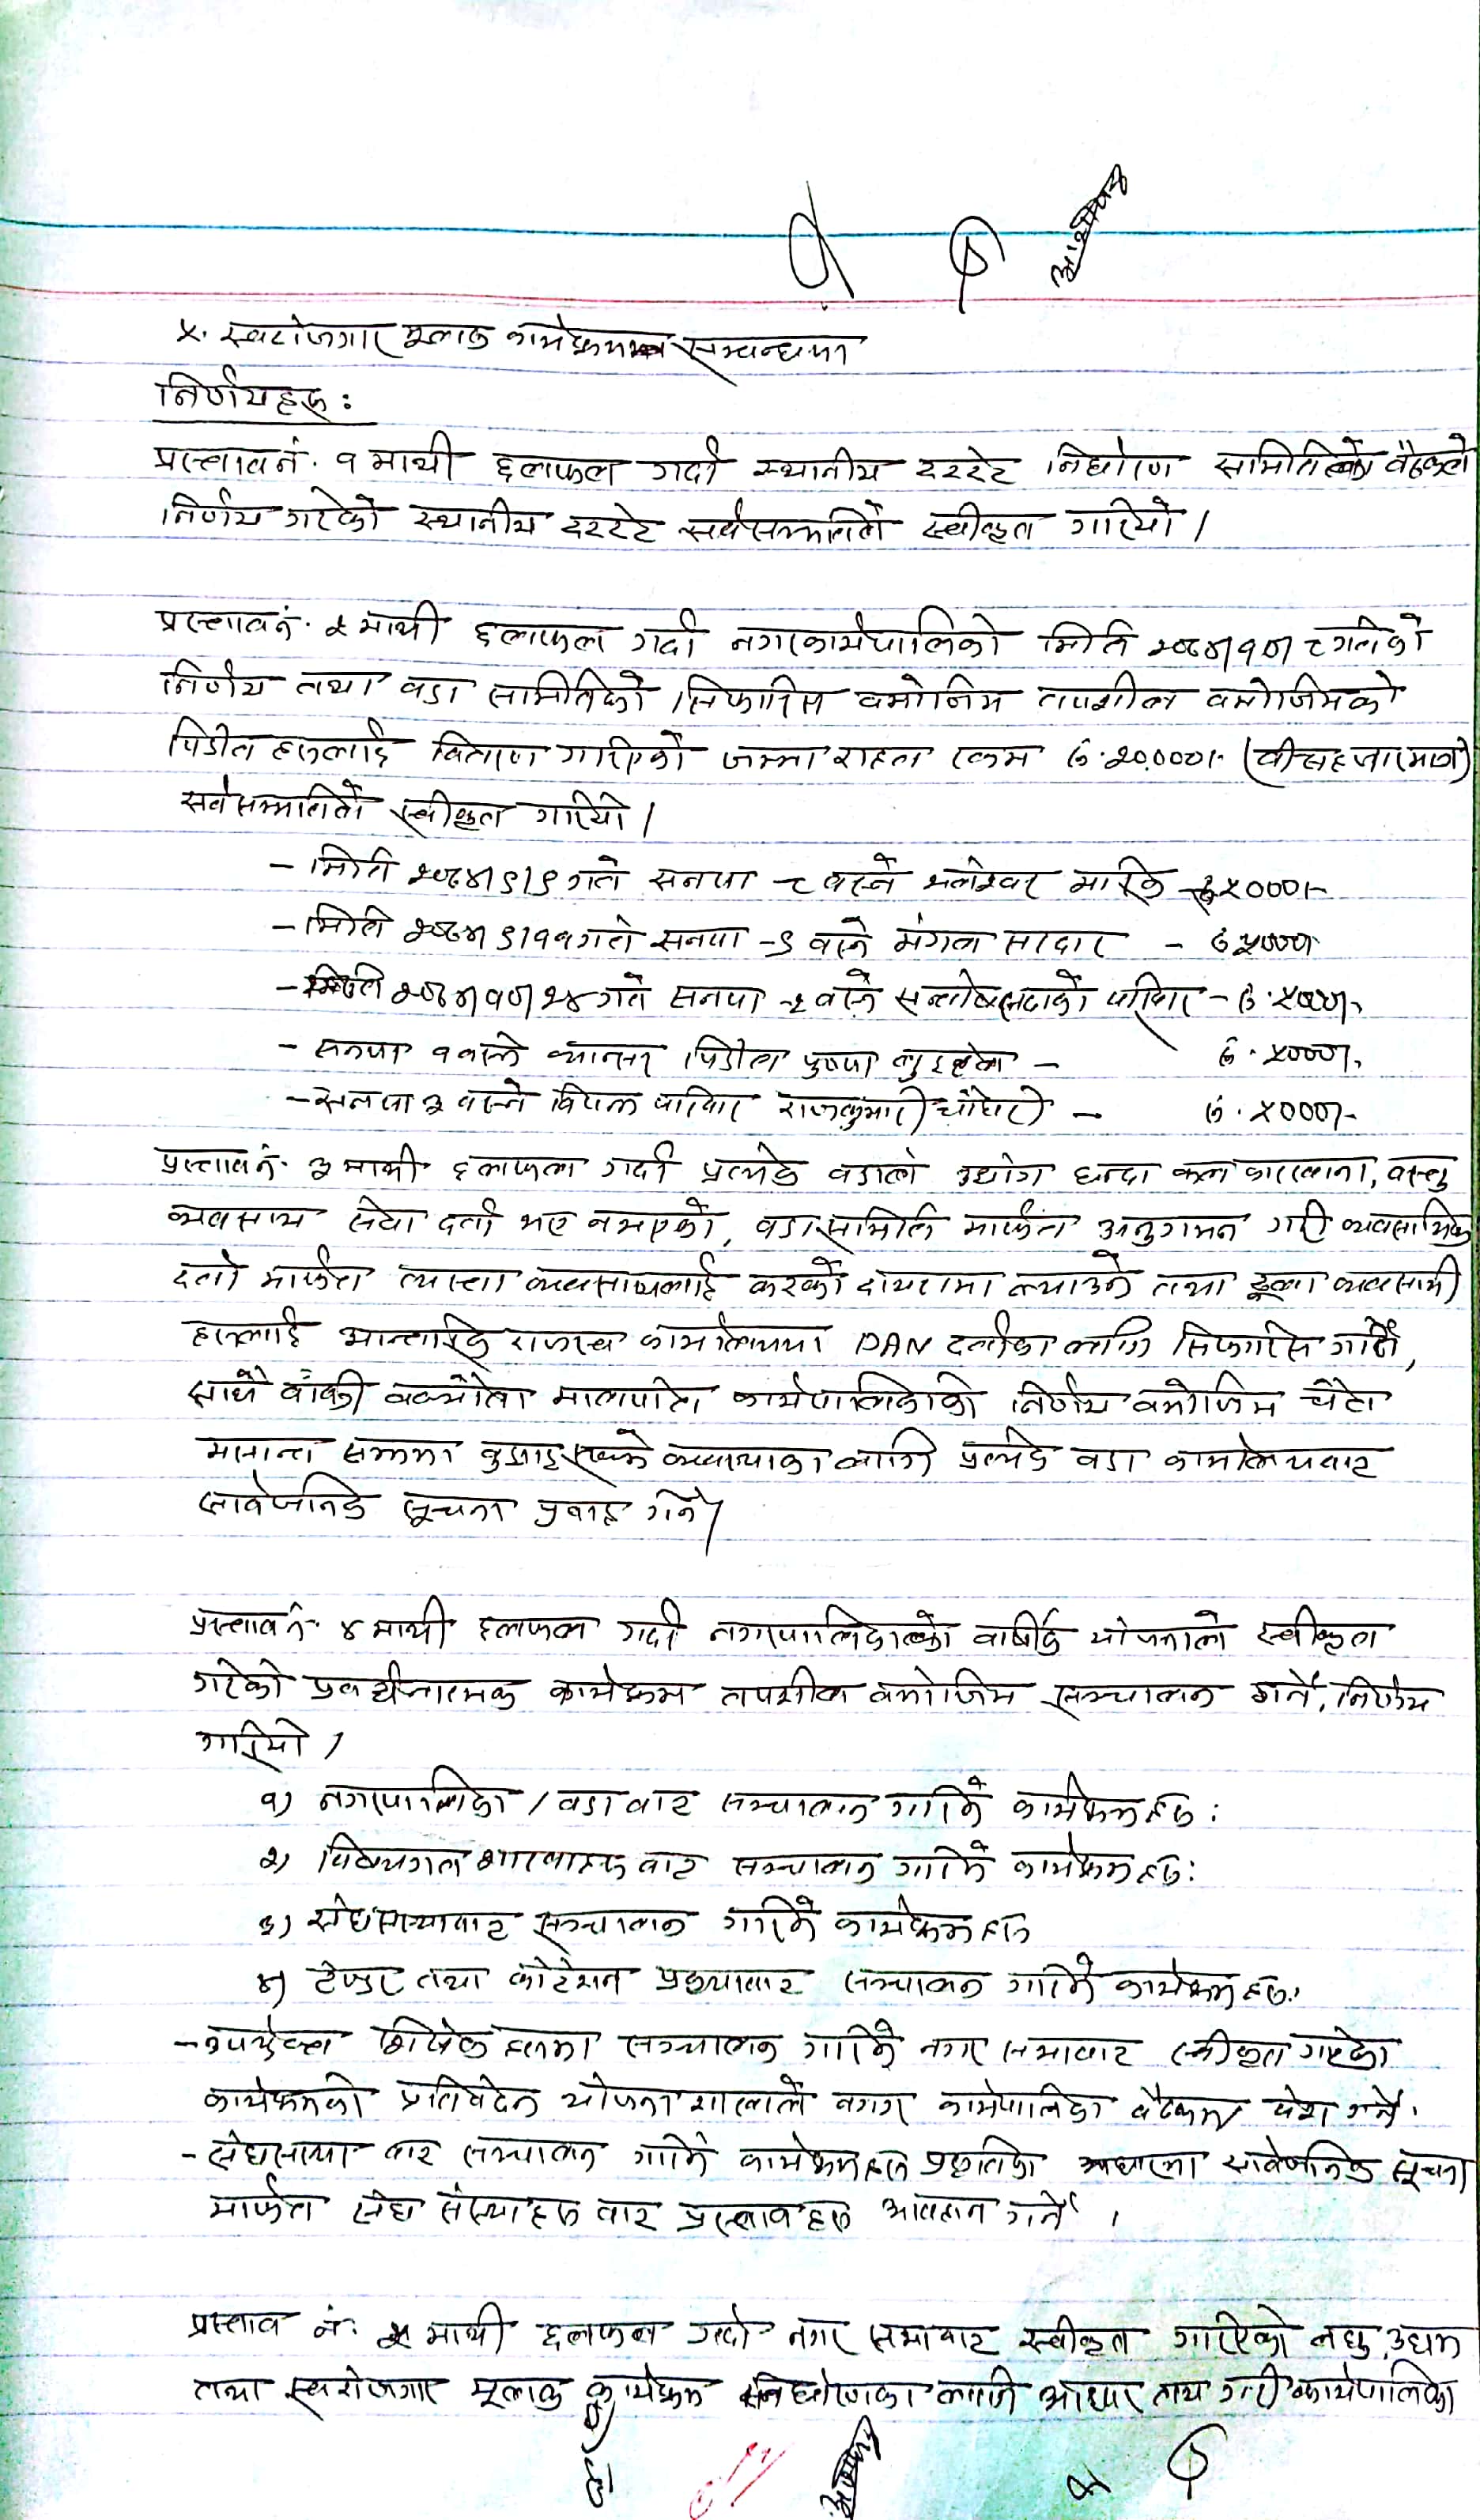 ५. स्वरोजगार मूलक कार्यक्रम सम्बन्धमा
निर्णयहरु :
प्रस्ताव नं. १ माथी छलफल गर्दा स्थानीय दररेट निर्धारण समितिको बैठकले
निर्णय गरेको स्थानीय दररेट सर्वसम्मतिले स्वीकृत गरियो ।
प्रस्ताव नं. २ माथी छलफल गर्दा नगरकार्यपालिको मिति २०७४।१०।८ गतेको
निर्णय तथा वडा समितिको सिफारिस बमोजिम तपशील बमोजिमको
पिडीत हरुलाई वितरण गरिएको जम्मा राहत रकम रु.२०,०००।- (वीस हजार मात्र)
सर्वसम्मतिले स्वीकृत गरियो ।
- मिति २०७४।९।९ गते सनपा - ८ बस्ने भलेश्वर माझि रु ५०००।-
- मिति २०७४।९।११ गते सनपा -९ बस्ने मंगल सरदार - रु ५०००।
- मिति २०७४।१०।२४ गते सनपा -२ बस्ने परिवार - रु. ५०००।-
- सनपा १ बस्ने क्यान्सर पिडीत पुष्पा - रु. ५०००।-
- सनपा ३ बस्ने विपन्न परिवार राजकुमारी चौधरी - रु. ५०००।-
प्रस्ताव नं. ३ माथी छलफल गर्दा प्रत्येक वडाले उद्योग धन्दा कल कारखाना, वस्तु
व्यवसाय सेवा दर्ता भए नभएको, वडा समिति मार्फत अनुगमन गरी व्यवसायिक
दर्ता मार्फत त्यस्ता व्यवसायलाई करको दायरामा ल्याउने तथा ठूला व्यवसायी
हरुलाई आन्तरिक राजस्व कार्यालयमा PAN दर्ताका लागि सिफारिस गर्ने,
साथै बाँकी बक्यौता मालपोत कार्यपालिकाको निर्णय बमोजिम चैत्र
मसान्त सम्ममा बुझाई सक्ने व्यवस्थाका लागि प्रत्येक वडा कार्यालयबाट
सार्वजनिक सूचना प्रवाह गर्ने ।
प्रस्ताव नं. ४ माथी छलफल गर्दा नगरपालिकाको वार्षिक योजनाले स्वीकृत
गरेको प्रवर्धनात्मक कार्यक्रम तपशील बमोजिम सञ्चालन गर्ने, निर्णय
गरियो ।
१) नगरपालिका / वडा बाट सञ्चालन गरिने कार्यक्रमहरु :
२) विषयगत शाखाहरु बाट सञ्चालन गरिने कार्यक्रमहरु :
३) संघसंस्थाबाट सञ्चालन गरिने कार्यक्रमहरु
४) टेण्डर तथा कोटेसन प्रक्रयाबाट सञ्चालन गरिने कार्यक्रमहरु :
- उपर्युक्त शिर्षक हरुमा सञ्चालन गरिने नगर सभाबाट स्वीकृत गरेका
कार्यक्रमको प्रतिवेदन योजना शाखाले नगर कार्यपालिका बैठकमा पेश गर्ने ।
- संघसंस्था बाट सञ्चालन गरिने कार्यक्रमहरु प्रकृतिका आधारमा सार्वजनिक सूचना
मार्फत संघ संस्थाहरु बाट प्रस्तावहरु आवहान गर्ने ।
प्रस्ताव नं. ५ माथी छलफल गर्दा नगर सभाबाट स्वीकृत गरिएको लघु उद्यम
तथा स्वरोजगार मूलक कार्यक्रम निर्धारणका लागि आधार तय गरी कार्यपालिका